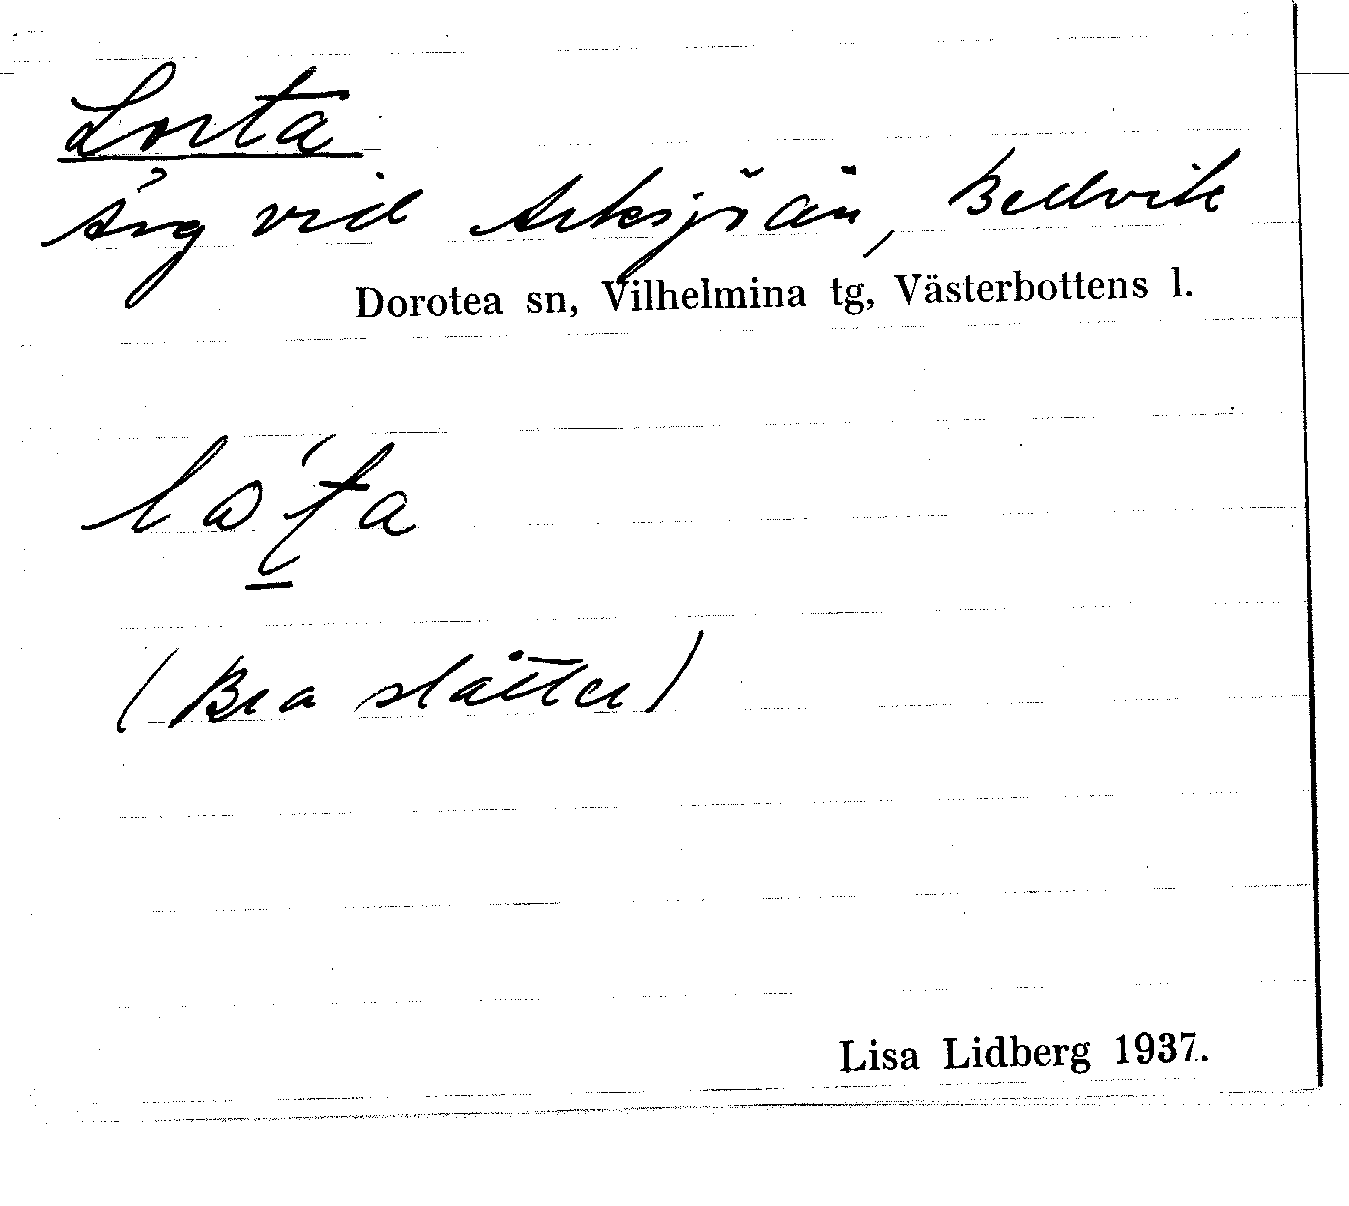 Lorta
Äng vid Arksjöån, Bellvik
Dorotea sn, Vilhelmina tg, Västerbottens l.
(Bra slåtter)
Lisa Lidberg 1937.